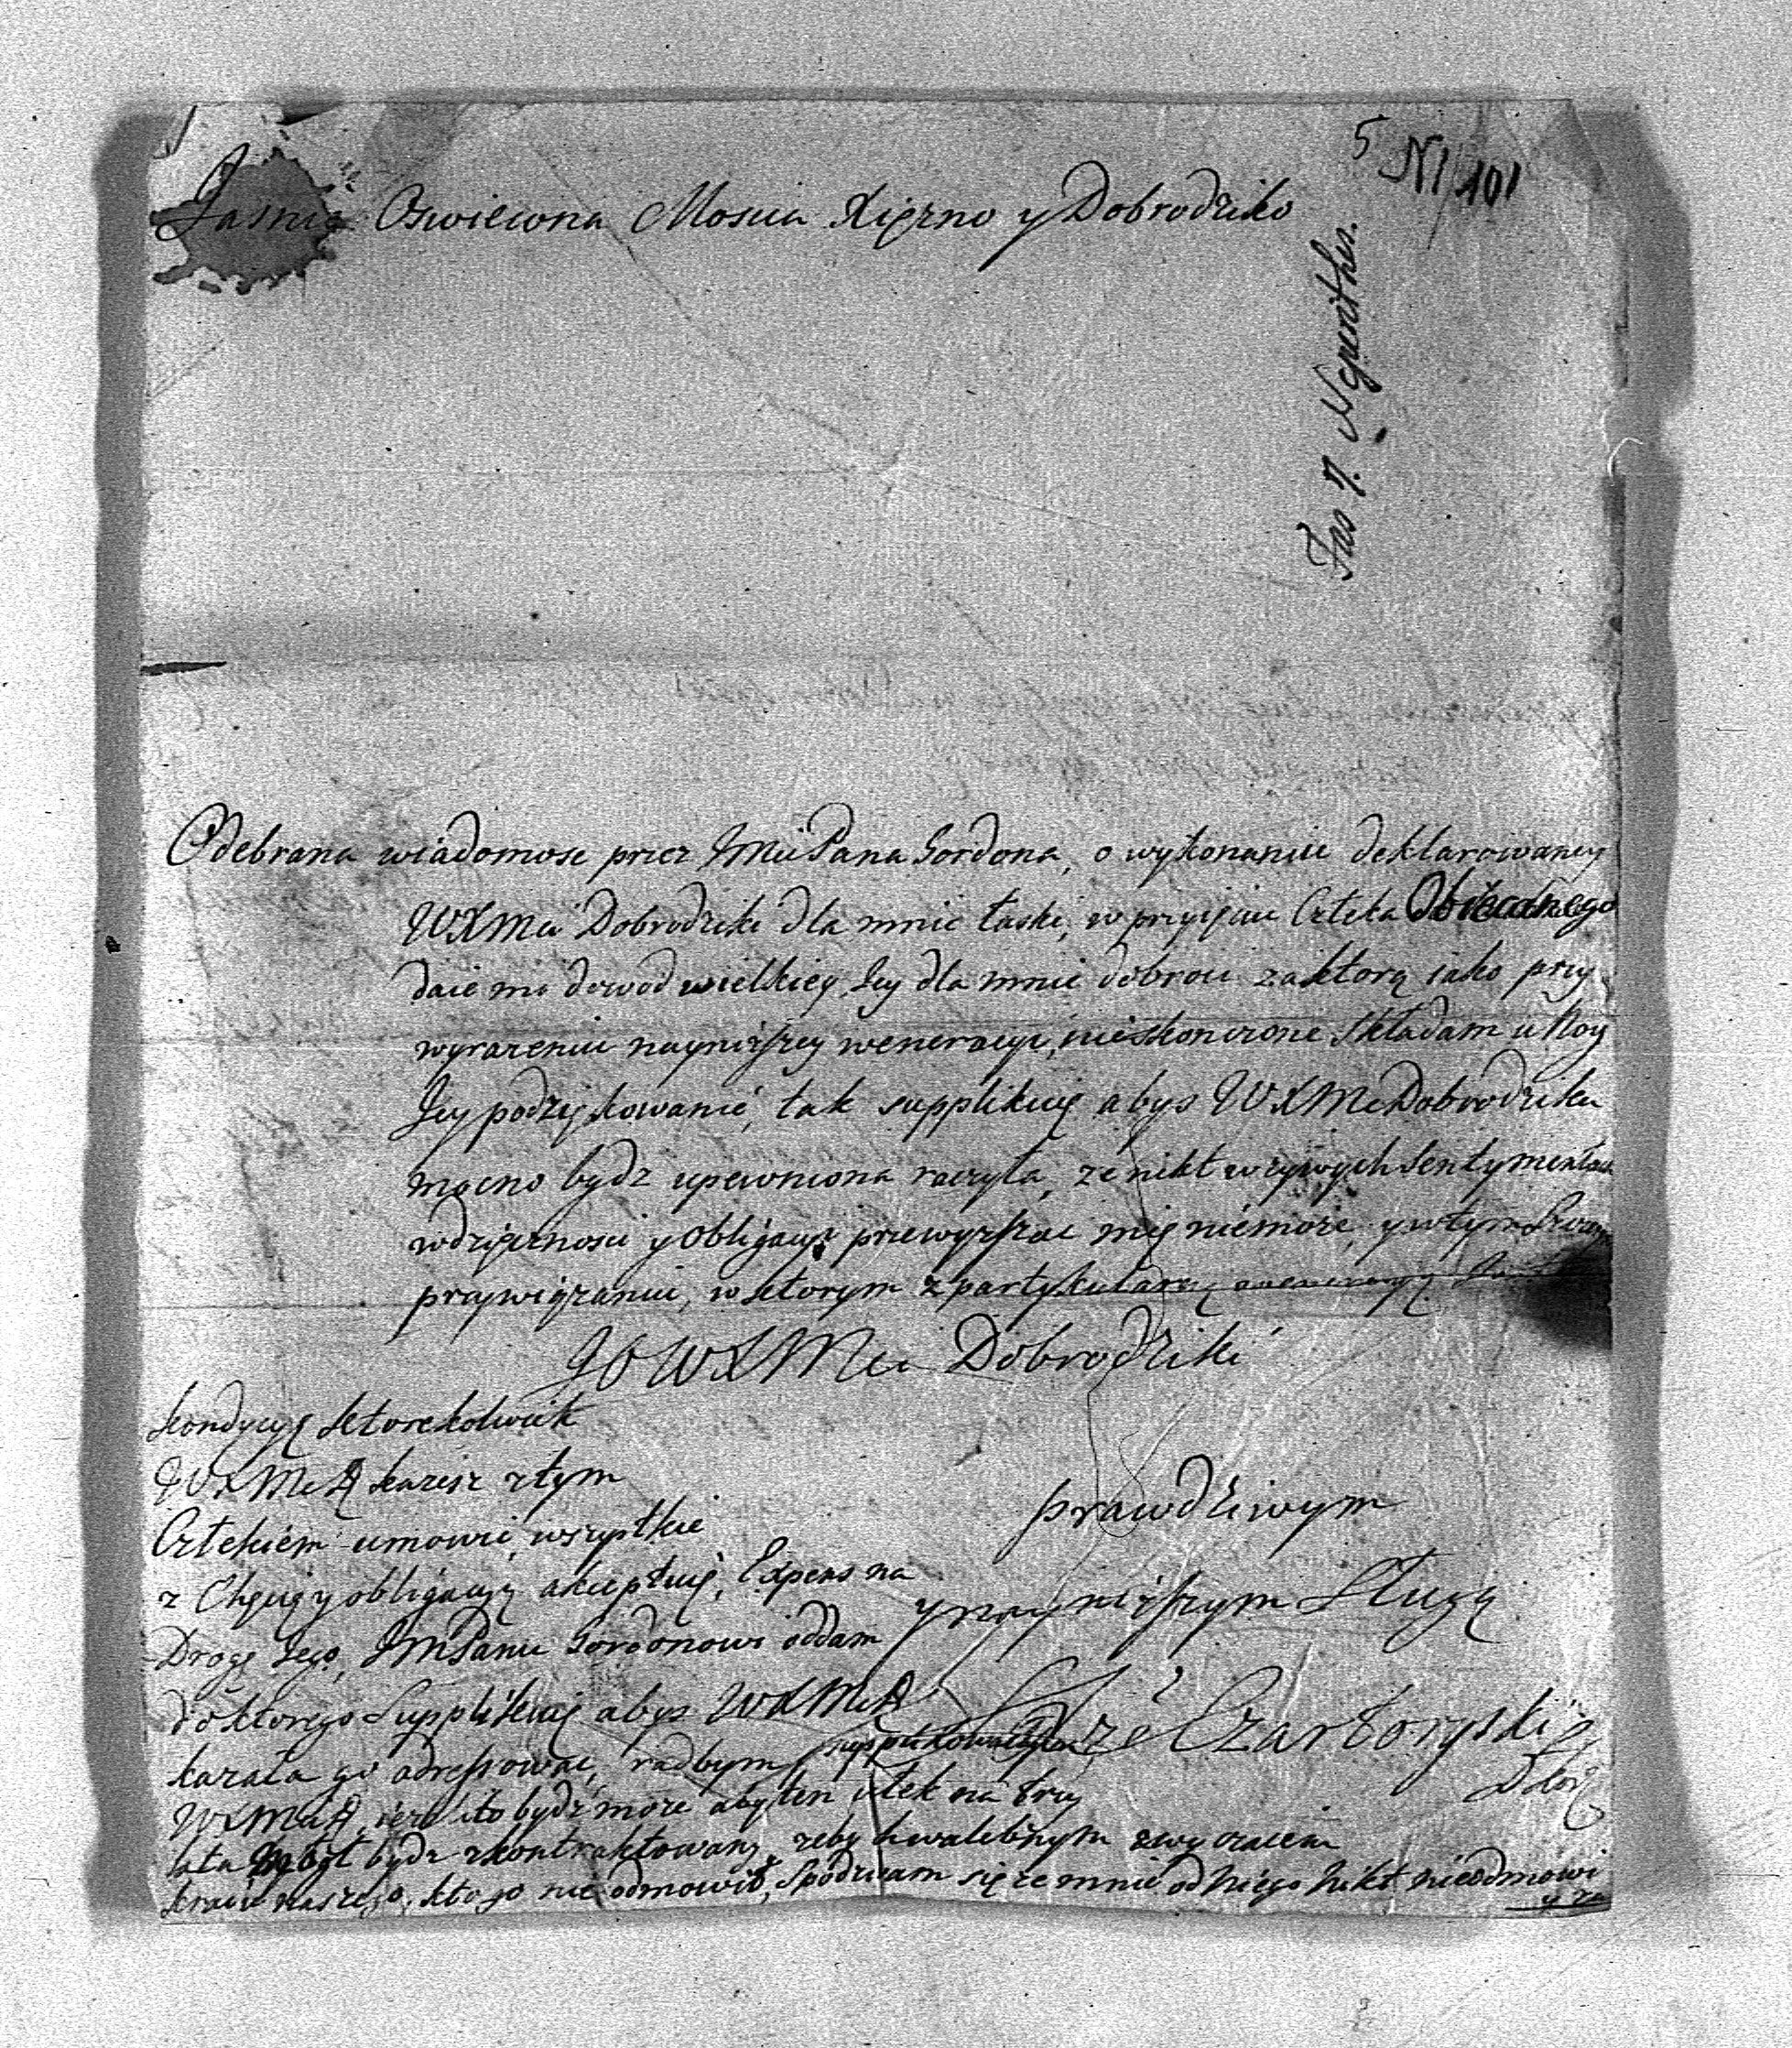 5 N 101
Jasnie Oswiecona Moscia Xiężno y Dobrodziko
Fas 7.
Odebrana wiadomosc przez JMci Pana Gordona, o wykonaniu deklarowaney
WXMci Dobrodziki dla mnie łaski, w przyięciu Człeka Obiecanego
daie mi dowod wielkiey Jey dla mnie dobroci za ktorą iako przy
wyrazeniu nayniższey weneracyi, nieskonczone składam u Nog
Jey podziękowanie, tak supplikuię abys WXMc Dobrodzika
mocno bydz upewniona raczyła, ze nikt w zywych sentymentach
wdzięcznosci y obligacyi przewyższac mię niemoze, y w tym
przywiązaniu, w ktorym z partykularną weneracyą
JOWXMci Dobrodziki
prawdziwym
y nayniższym Sługą
Czartoryski
kondycyę ktorekolwiek
WXMcD kazesz z tym
Człekiem umowic, wszystkie
z Chęcią y obligacyą akceptuię, Expens na
Drogę Jego, JMPanu Gordonowi oddam
do ktorego Supplikuię abys WXMcD
kazała go adressowac, radbym supplikował
WXMciD, iezeli to bydz moze aby ten człek na trzy
lata był bydz zkontraktowany, zeby chwalebnym zwyczaiem
kraiu naszego kto go nie odmowił, Spodziwam się ze mnie od Niego Nikt nieodmowi
y za